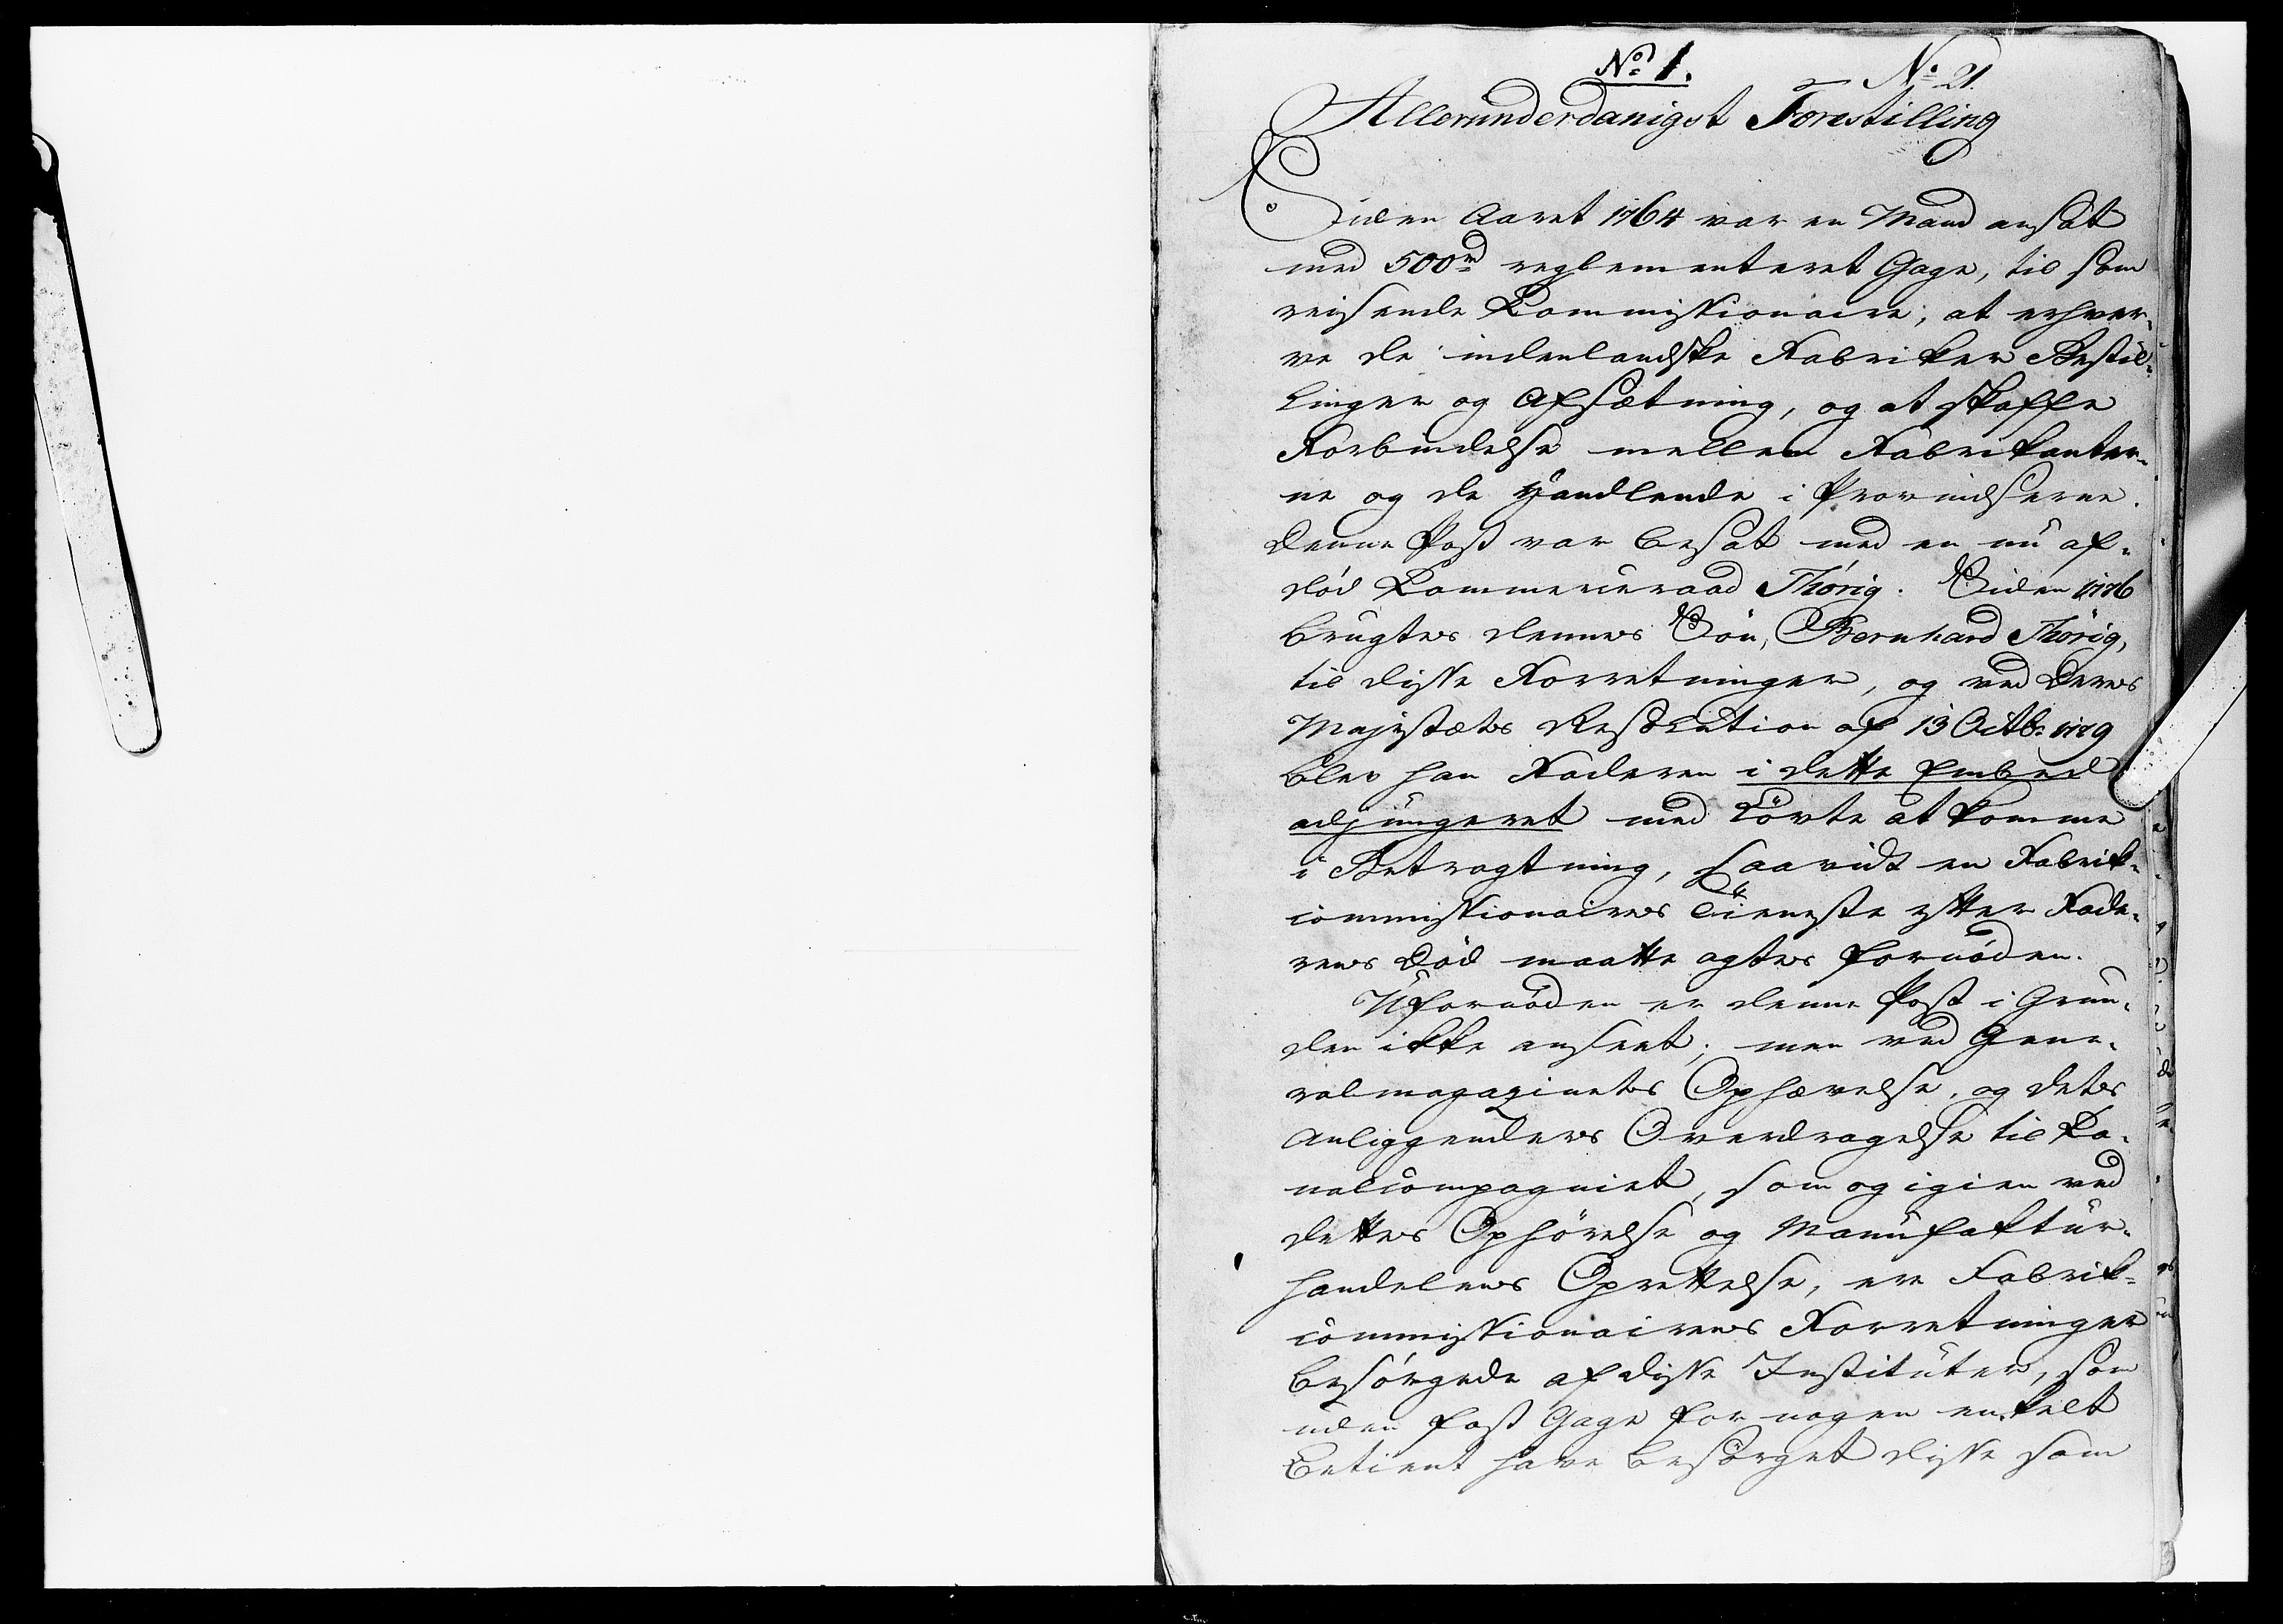 No 1.
No 21.
Allerunderdanigst Forestilling
Siden Aaret 1764 var en Mand ansat
med 500rd reglementeret Gage, til som
reisende Kommissionaire, at erhver-
ve de indenlandske Fabriker Bestil-
linger og Afsætning, og at skaffe
Forbindelse mellem Fabrikanter-
ne og de Handlende i Provindserne.
Denne Post var besat med en nu af-
død Kommerceraad Thørig. Siden 1776
brugtes dennes Søn, Bernhard Thørig,
til disse Forretninger, og ved Deres
Majestæts Resolution af 13 Octb: 1779
blev han Faderen i dette Embed
adjungeret med Løvte at komme
i Betragtning, saavidt en Fabrik-
commissionaires Tieneste efter Fade-
rens Død maatte agtes fornøden.
Ufornøden er denne Post i Grun-
den ikke anseet; men ved Gene-
ralmagazinets Ophævelse, og dets
Anliggenders Overdragelse til Ka-
nalcompagniet, som og igien ved
dettes Ophørelse og Manufaktur-
handelens Oprettelse, ere Fabrik-
commissionairens Forretninger
besørgede af disse Instituter, som
uden fast Gage for nogen enkelt
Betient have besørget disse som